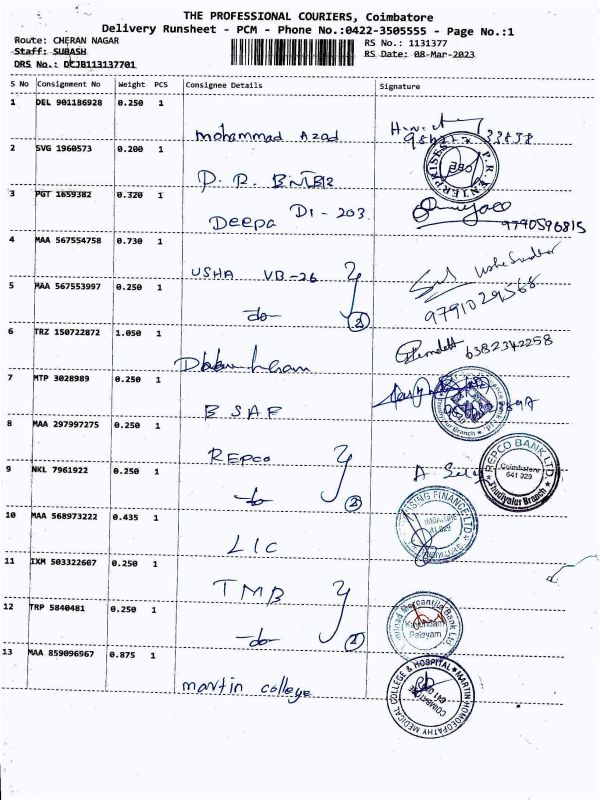 THE PROFESSIONAL COURIERS, Coimbatore
Delivery Runsheet - PCM - Phone No.:0422-3505555 - Page No.:1
Route: CHERAN NAGAR
RS No.: 1131377
Staff: SUBASH
RS Date: 08-Mar-2023
DRS No.: DCJB113137701
S No Consignment No Weight PCS Consignee Details Signature
1 DEL 901186928 0.250 1
Mohammad Azad
2 SVG 1960573 0.200 1
P. R.
ENTERPRISES P.R.
3 PGT 1659382 0.320 1
Deepa D1-203
9790596815
4 MAA 567554758 0.730 1
USHA VB-26
9791029568
5 MAA 567553997 0.250 1
-do- 2
6 TRZ 150722872 1.050 1
6382342258
7 MTP 3028989 0.250 1
BSAF
8 MAA 297997275 0.250 1
REPCO
REPCO BANK LTD
Coimbatore
641 029
Thudiyalur Branch
9 NKL 7961922 0.250 1
-do- 2
10 MAA 568973222 0.435 1
LIC
HOUSING FINANCE LTD
11 IXM 503322607 0.250 1
TMB
12 TRP 5840481 0.250 1
-do- 2
Tamilnad Mercantile Bank Ltd.
Kavundam
Palayam
13 MAA 859096967 0.875 1
martin college
MARTIN HOMOEOPATHY MEDICAL COLLEGE & HOSPITAL
COIMBATORE